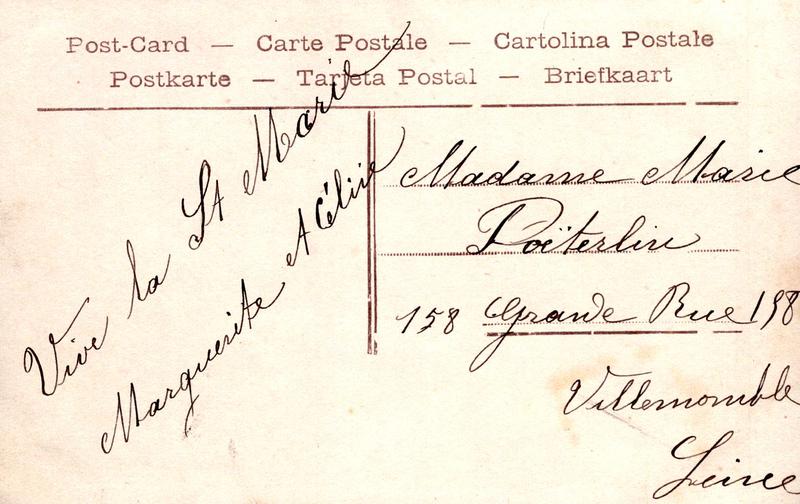 Post-Card — Carte Postale — Cartolina Postale
Postkarte — Tarjeta Postal — Briefkaart
Vive la St Marie
Marguerite et Céline
Madame Marie
Poëterlin
158 Grande Rue 158
Villemomble
Seine